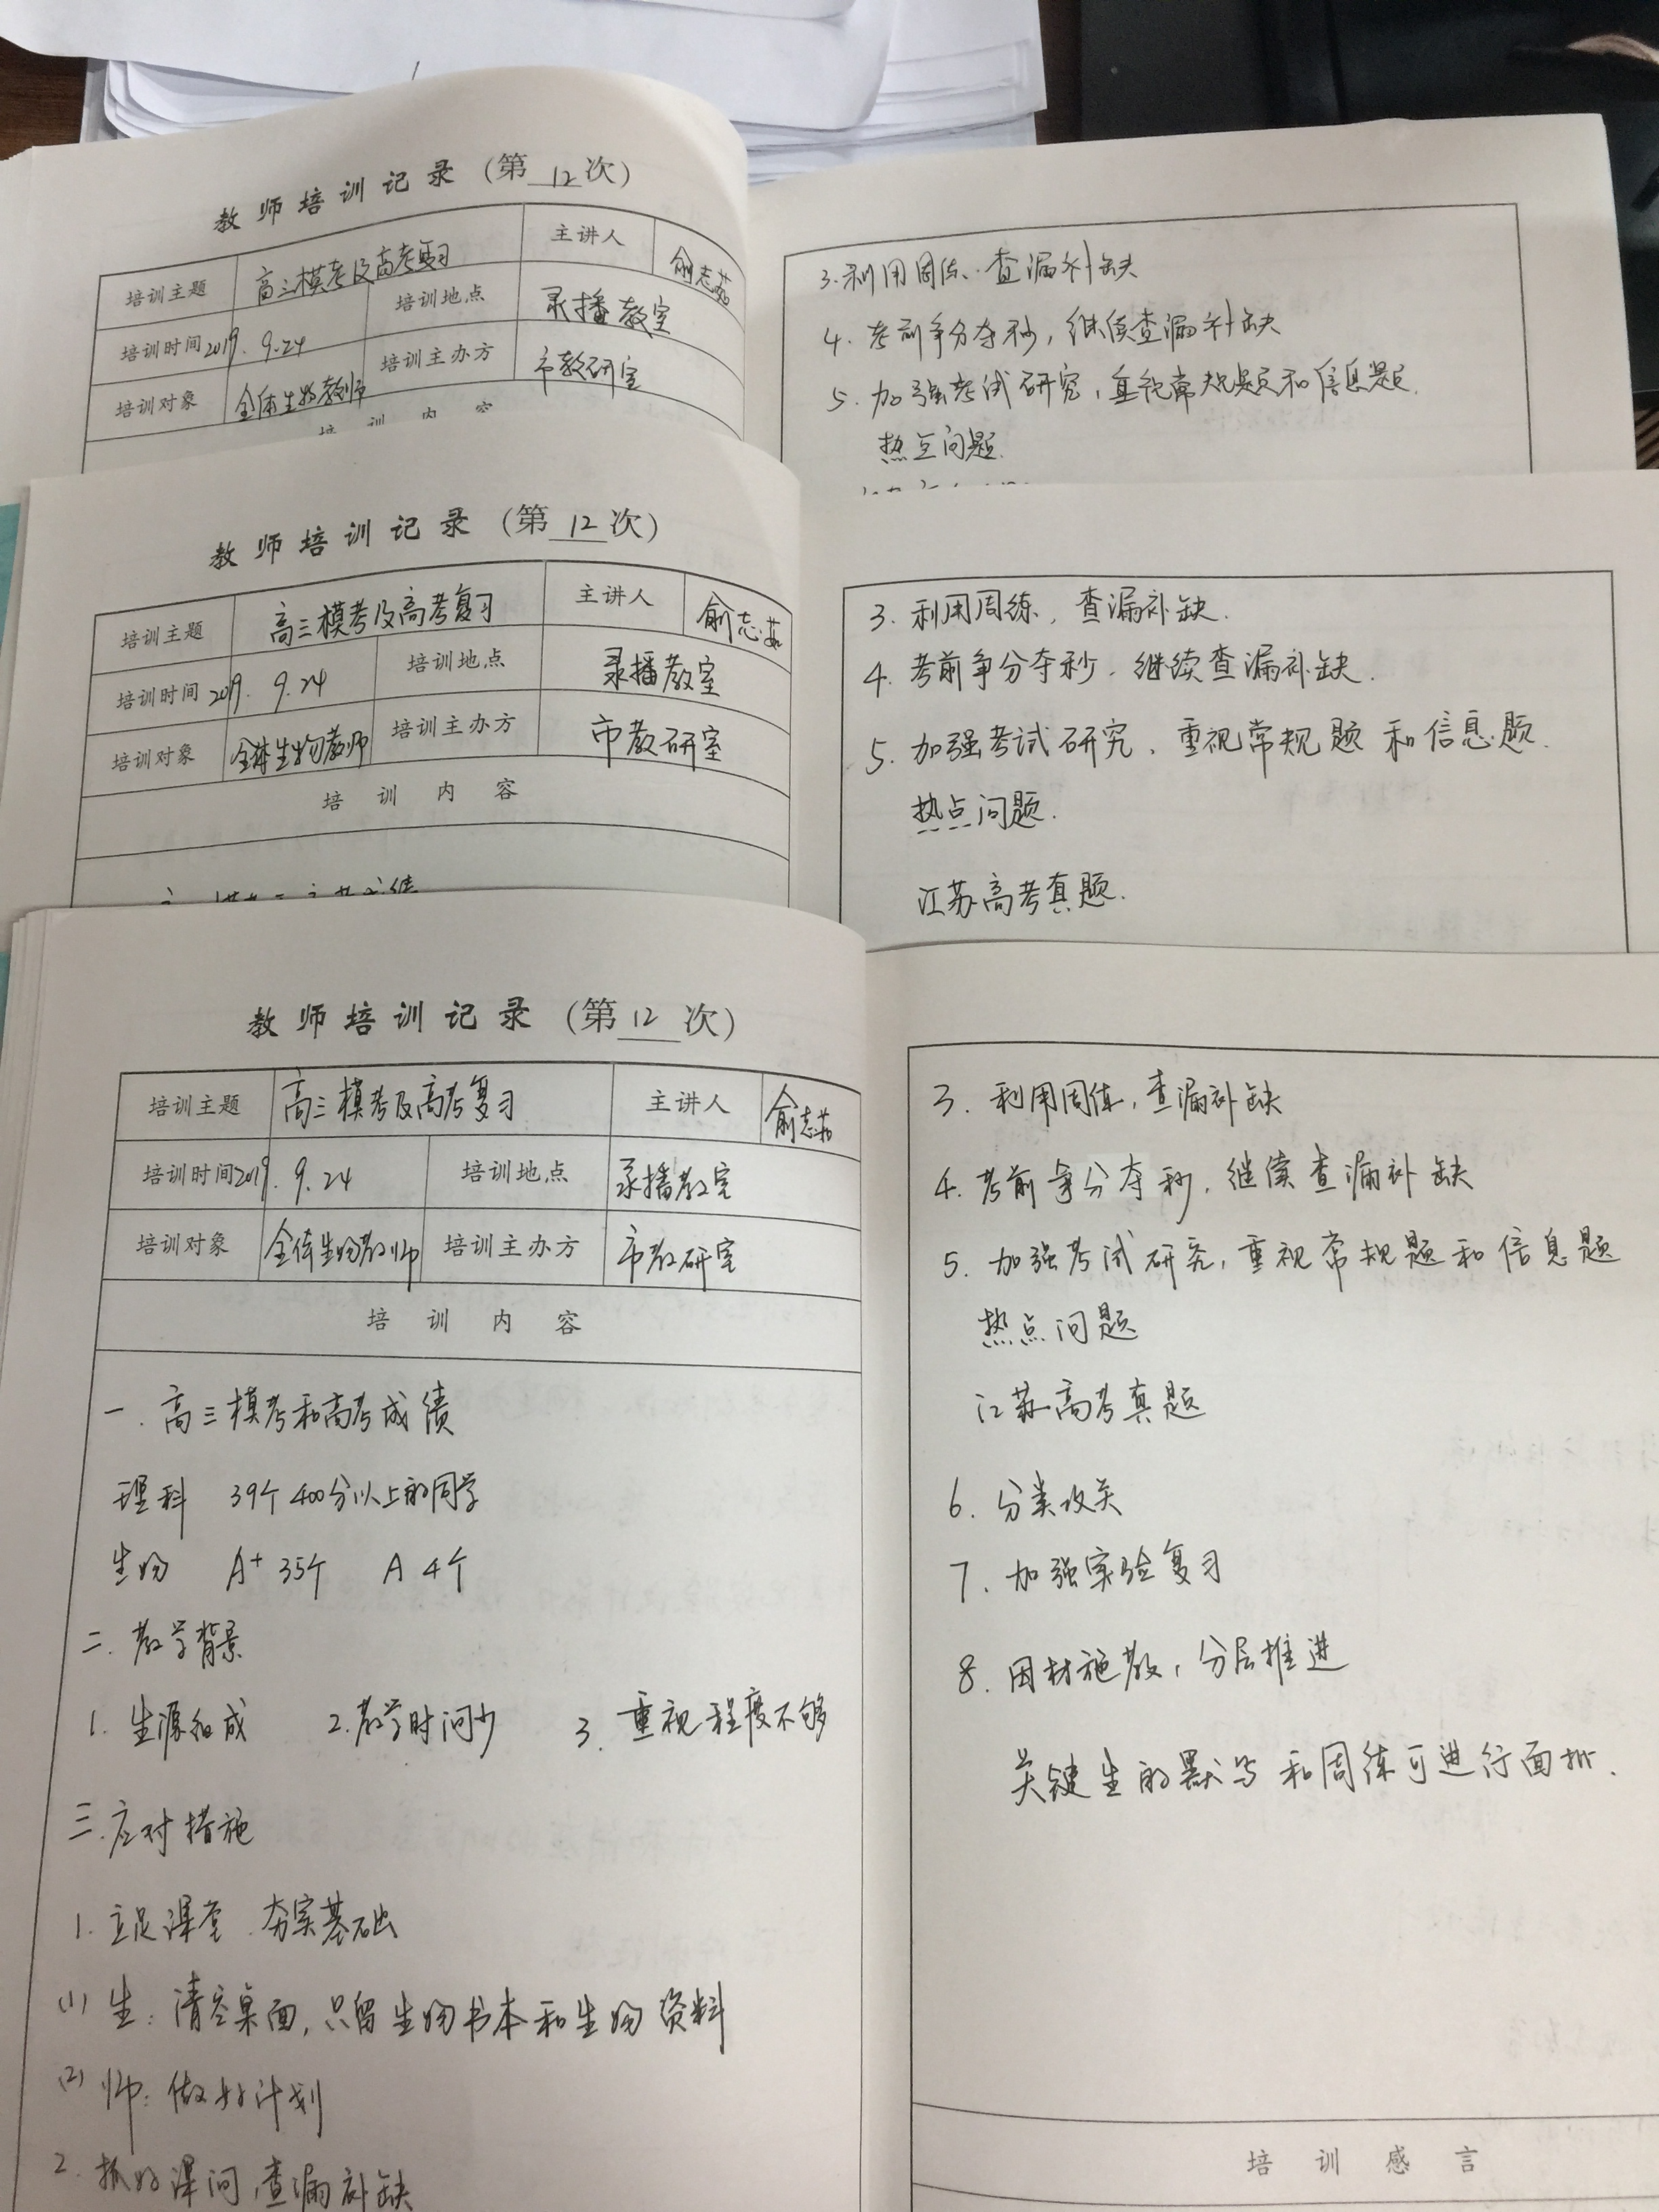 教师培训记录（第12次）
培训主题 高三模考及高考复习 主讲人 俞志茹
培训时间 2019. 9.24 培训地点 录播教室
培训对象 全体生物教师 培训主办方 市教研室
培 训 内 容
3. 利用周练. 查漏补缺
4. 考前争分夺秒, 继续查漏补缺
5. 加强考试研究, 重视常规题和信息题.
热点问题.
教师培训记录（第12次）
培训主题 高三模考及高考复习 主讲人 俞志茹
培训时间 2019. 9.24 培训地点 录播教室
培训对象 全体生物教师 培训主办方 市教研室
培 训 内 容
3. 利用周练, 查漏补缺.
4. 考前争分夺秒, 继续查漏补缺.
5. 加强考试研究, 重视常规题和信息题.
热点问题.
江苏高考真题.
教师培训记录（第12次）
培训主题 高三模考及高考复习 主讲人 俞志茹
培训时间 2019. 9.24 培训地点 录播教室
培训对象 全体生物教师 培训主办方 市教研室
培 训 内 容
一. 高三模考和高考成绩
理科 39个400分以上的同学
生物 A+ 35个 A 4个
二. 教学背景
1. 生源组成 2. 教学时间少 3. 重视程度不够
三. 应对措施
1. 立足课堂. 夯实基础
(1) 生: 清空桌面, 只留生物书本和生物资料
(2) 师: 做好计划
2. 抓好课间, 查漏补缺
3. 利用周练, 查漏补缺
4. 考前争分夺秒, 继续查漏补缺
5. 加强考试研究, 重视常规题和信息题
热点问题
江苏高考真题
6. 分类攻关
7. 加强实验复习
8. 因材施教, 分层推进
关键生的默写和周练可进行面批.
培 训 感 言